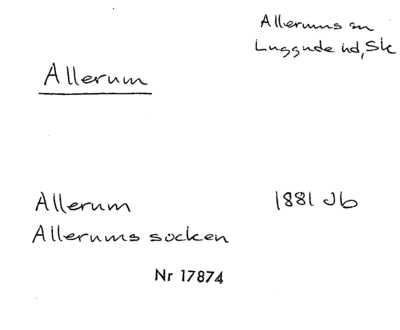 Allerums sn
Luggude hd, Sk
Allerum
Allerum 1881 Jb
Allerums socken
Nr 17874